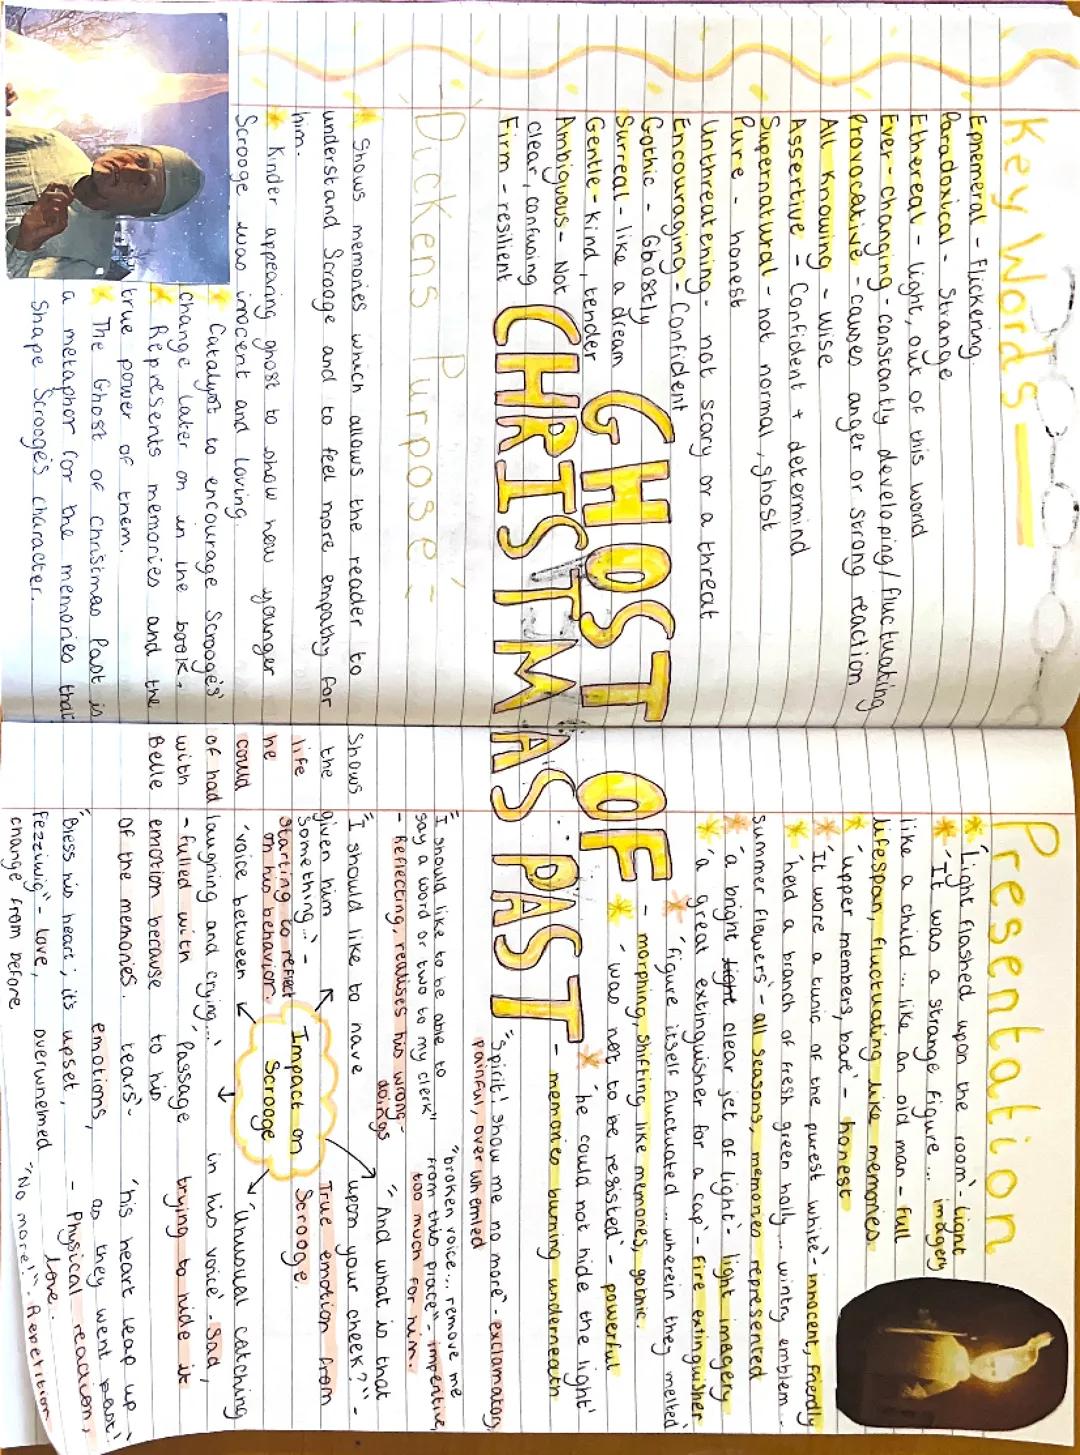 Key Words
Ephemeral - Flickering
Paradoxical - Strange
Ethereal - Light, out of this world
Ever-changing - constantly developing/fluctuating
Provocative - causes anger or strong reaction
All Knowing - Wise
Assertive - Confident + determind
Supernatural - not normal, ghost
Pure - honest
Unthreatening - not scary or a threat
Encouraging - Confident
Gothic - Ghostly
Surreal - like a dream
Gentle - kind, tender
Ambiguous - Not
clear, confusing
Firm - resilient
GHOST OF
CHRISTMAS PAST
Dickens Purpose:
Shows memories which allows the reader to
understand Scrooge and to feel more empathy for
him.
Kinder appearing ghost to show how younger
Scrooge was innocent and loving
Catalyst to encourage Scrooge's
change later on in the book.
Represents memories and the
true power of them.
The Ghost of Christmas Past is
a metaphor for the memories that
shape Scrooge's character.
Presentation
'Light flashed upon the room' - light
imagery
'It was a strange figure...
like a child... like an old man - full
lifespan, fluctuating like memories
'upper members, bare' - honest
'It wore a tunic of the purest white' - innocent, friendly
'held a branch of fresh green holly... wintry emblem...
summer flowers' - all seasons, memories represented
'a bright light clear jet of light' - light imagery
'a great extinguisher for a cap' - fire extinguisher
'figure itself fluctuated... wherein they melted'
- morphing, shifting like memories, gothic.
'was not to be resisted' - powerful
'he could not hide the light'
- memories burning underneath
Impact on
Scrooge
"Spirit! show me no more" - exclamatory,
painful, overwhemled
"I should like to be able to
say a word or two to my clerk"
- Reflecting, realises his wrong-
doings
"broken voice... remove me
from this place" - imperitive,
too much for him.
"I should like to have
given him
something..." -
starting to reflect
on his behavior.
"And what is that
upon your cheek?" -
True emotion from
Scrooge.
Shows
the
life
he
could
of had
with
Belle
'voice between
laughing and crying...'
- filled with
emotion because
of the memories.
'Unusual catching
in his voice' - Sad,
trying to hide it
'Passage
to his
tears' -
emotions,
overwhemed
'his heart leap up
as they went past'
- Physical reaction,
love.
"Bless his heart; it's
Fezziwig" - love,
upset,
change from before
"No more!" - Repetition